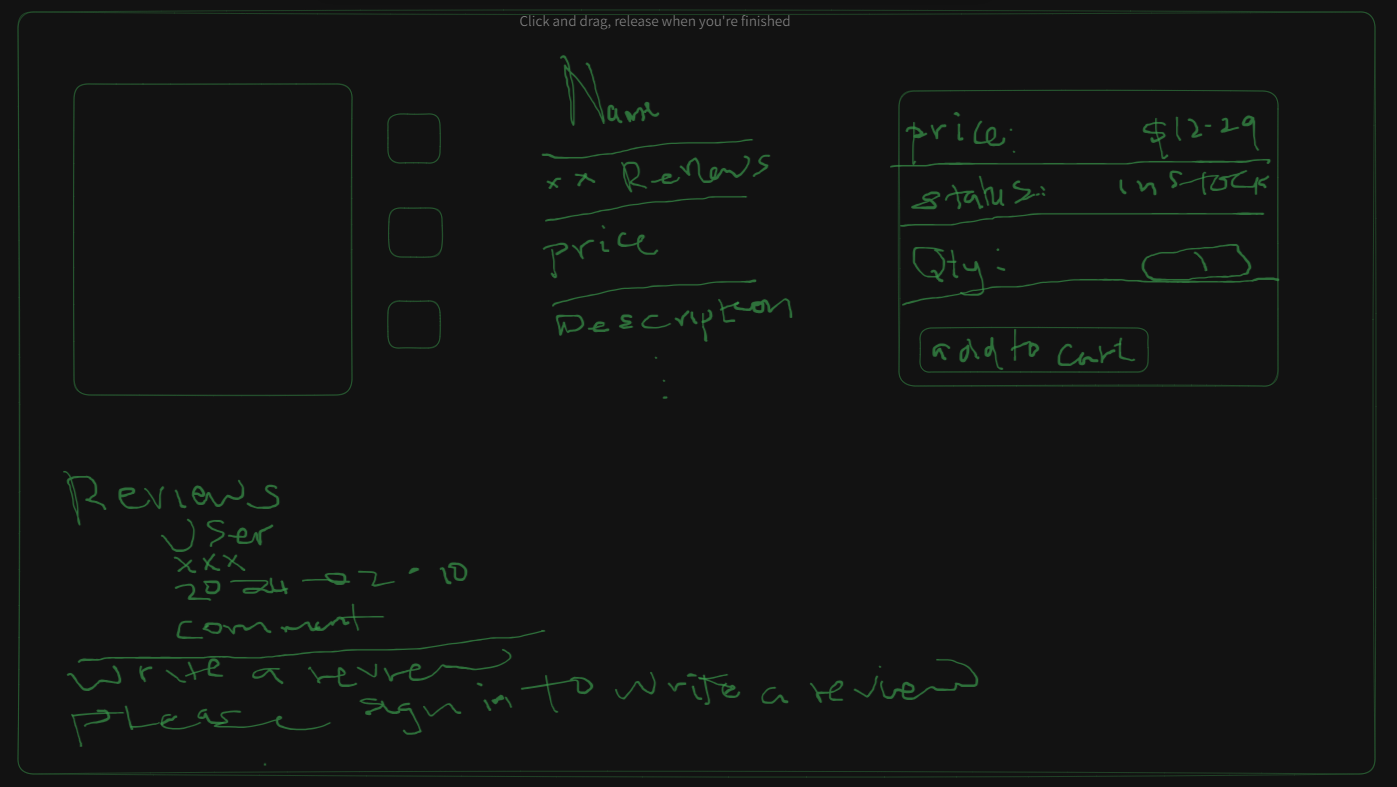 Click and drag, release when you're finished
Name
xx Reviews
price
Description
price: $12-29
status: instock
Qty: 1
add to cart
Reviews
User
xxx
2024-02-10
comment
write a review
please sign in to write a review